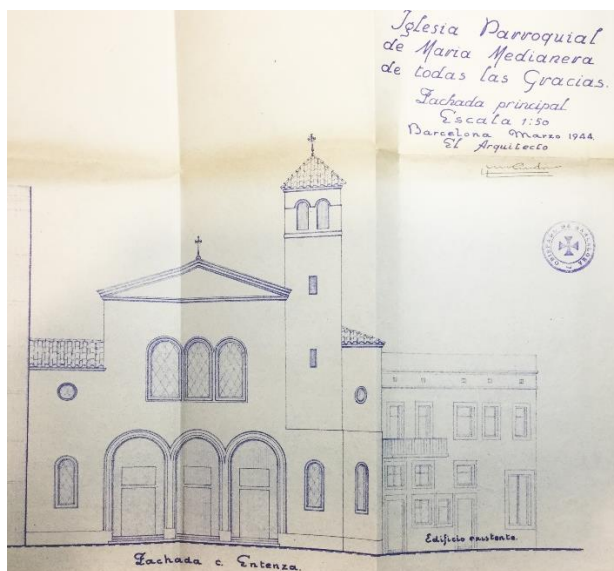 Iglesia Parroquial
de Maria Medianera
de todas las Gracias.
Fachada principal
Escala 1:50
Barcelona Marzo 1944.
El Arquitecto
OBISPADO DE BARCELONA
Edificio existente.
Fachada c. Entenza.